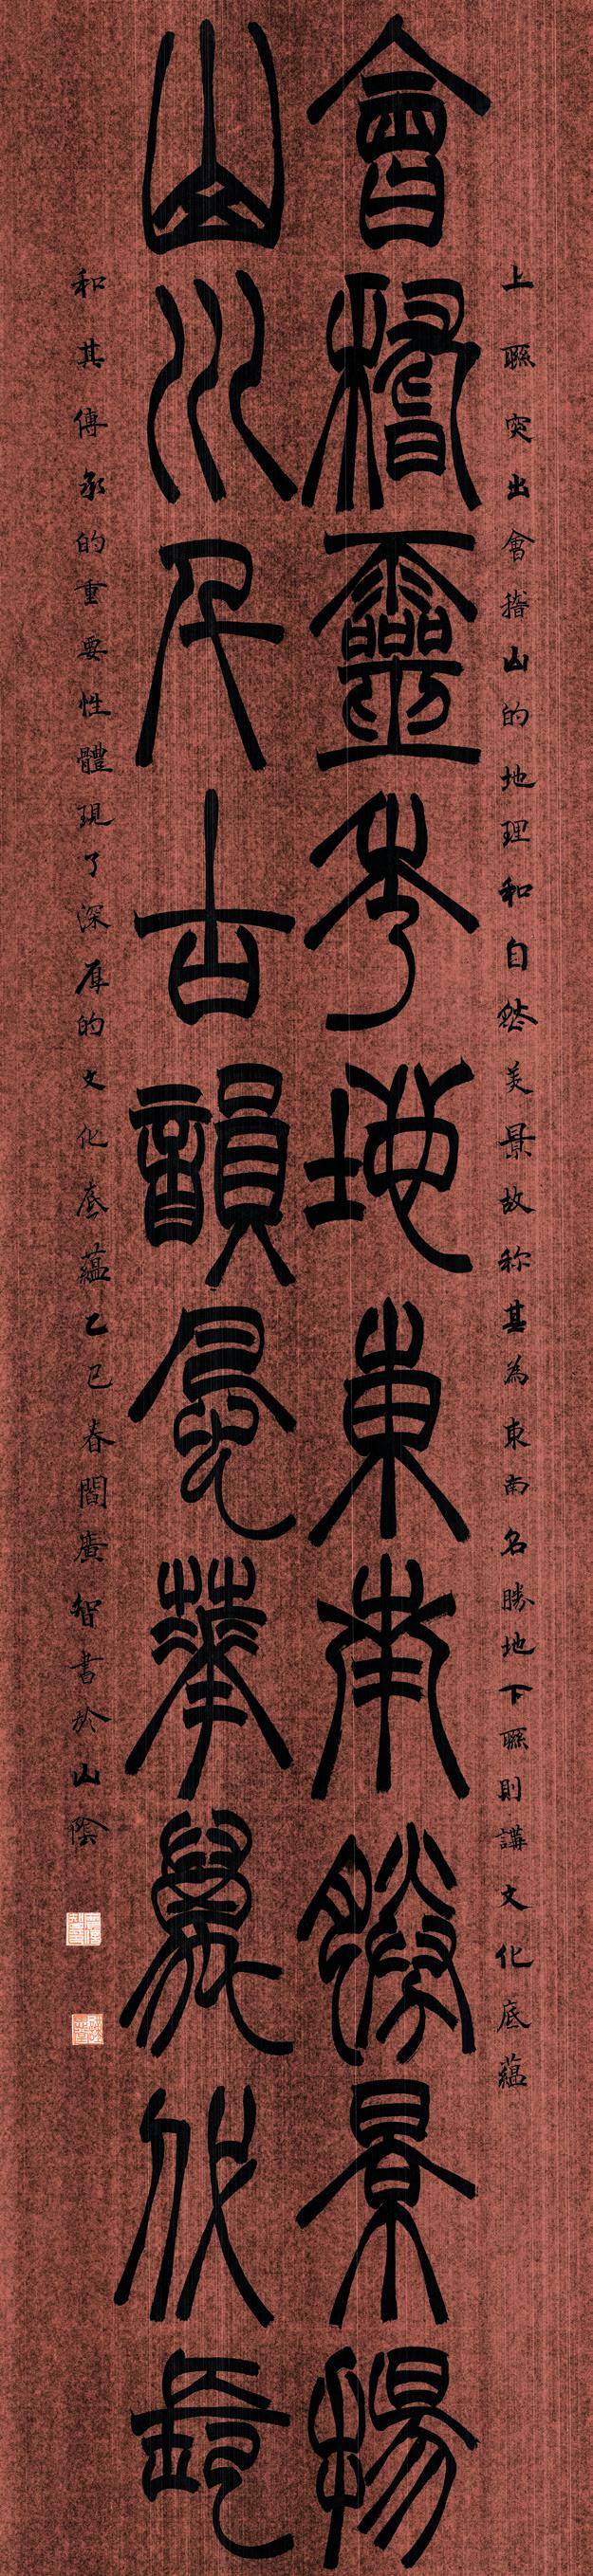 上聯突出會稽山的地理和自然美景故稱其為東南名勝地下聯則講文化底蘊
會稽靈秀地東南勝景揚
山川千古韻風華萬代
和其傳承的重要性體現了深厚的文化底蘊乙巳春閻廣智書於山陰